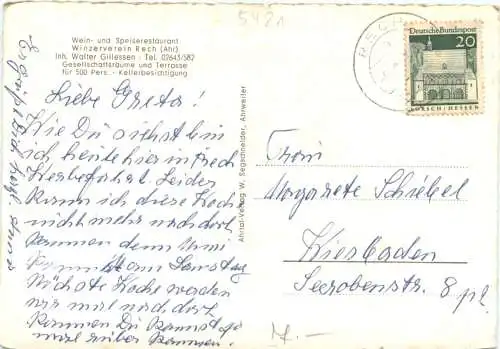 5421
Wein- und Speiserestaurant
Winzerverein Rech (Ahr)
Inh. Walter Gillessen · Tel. 02643/582
Gesellschaftsräume und Terrasse
für 500 Pers. - Kellerbesichtigung
Liebe Greta!
Wie Du siehst bin
ich heute hier in Rech
Leider
kann ich diese Woche
nicht mehr nach dort
kommen denn
kommt am Samstag
Nächste Woche werden
wir mal nach dort
kommen Du kannst ja
mal rüber kommen.
Ahrtal-Verlag W. Segschneider, Ahrweiler
RECH
Deutsche Bundespost
20
LORSCH/HESSEN
Frau
Margarete Schiebel
Wiesbaden
Seerobenstr. 8 pt.